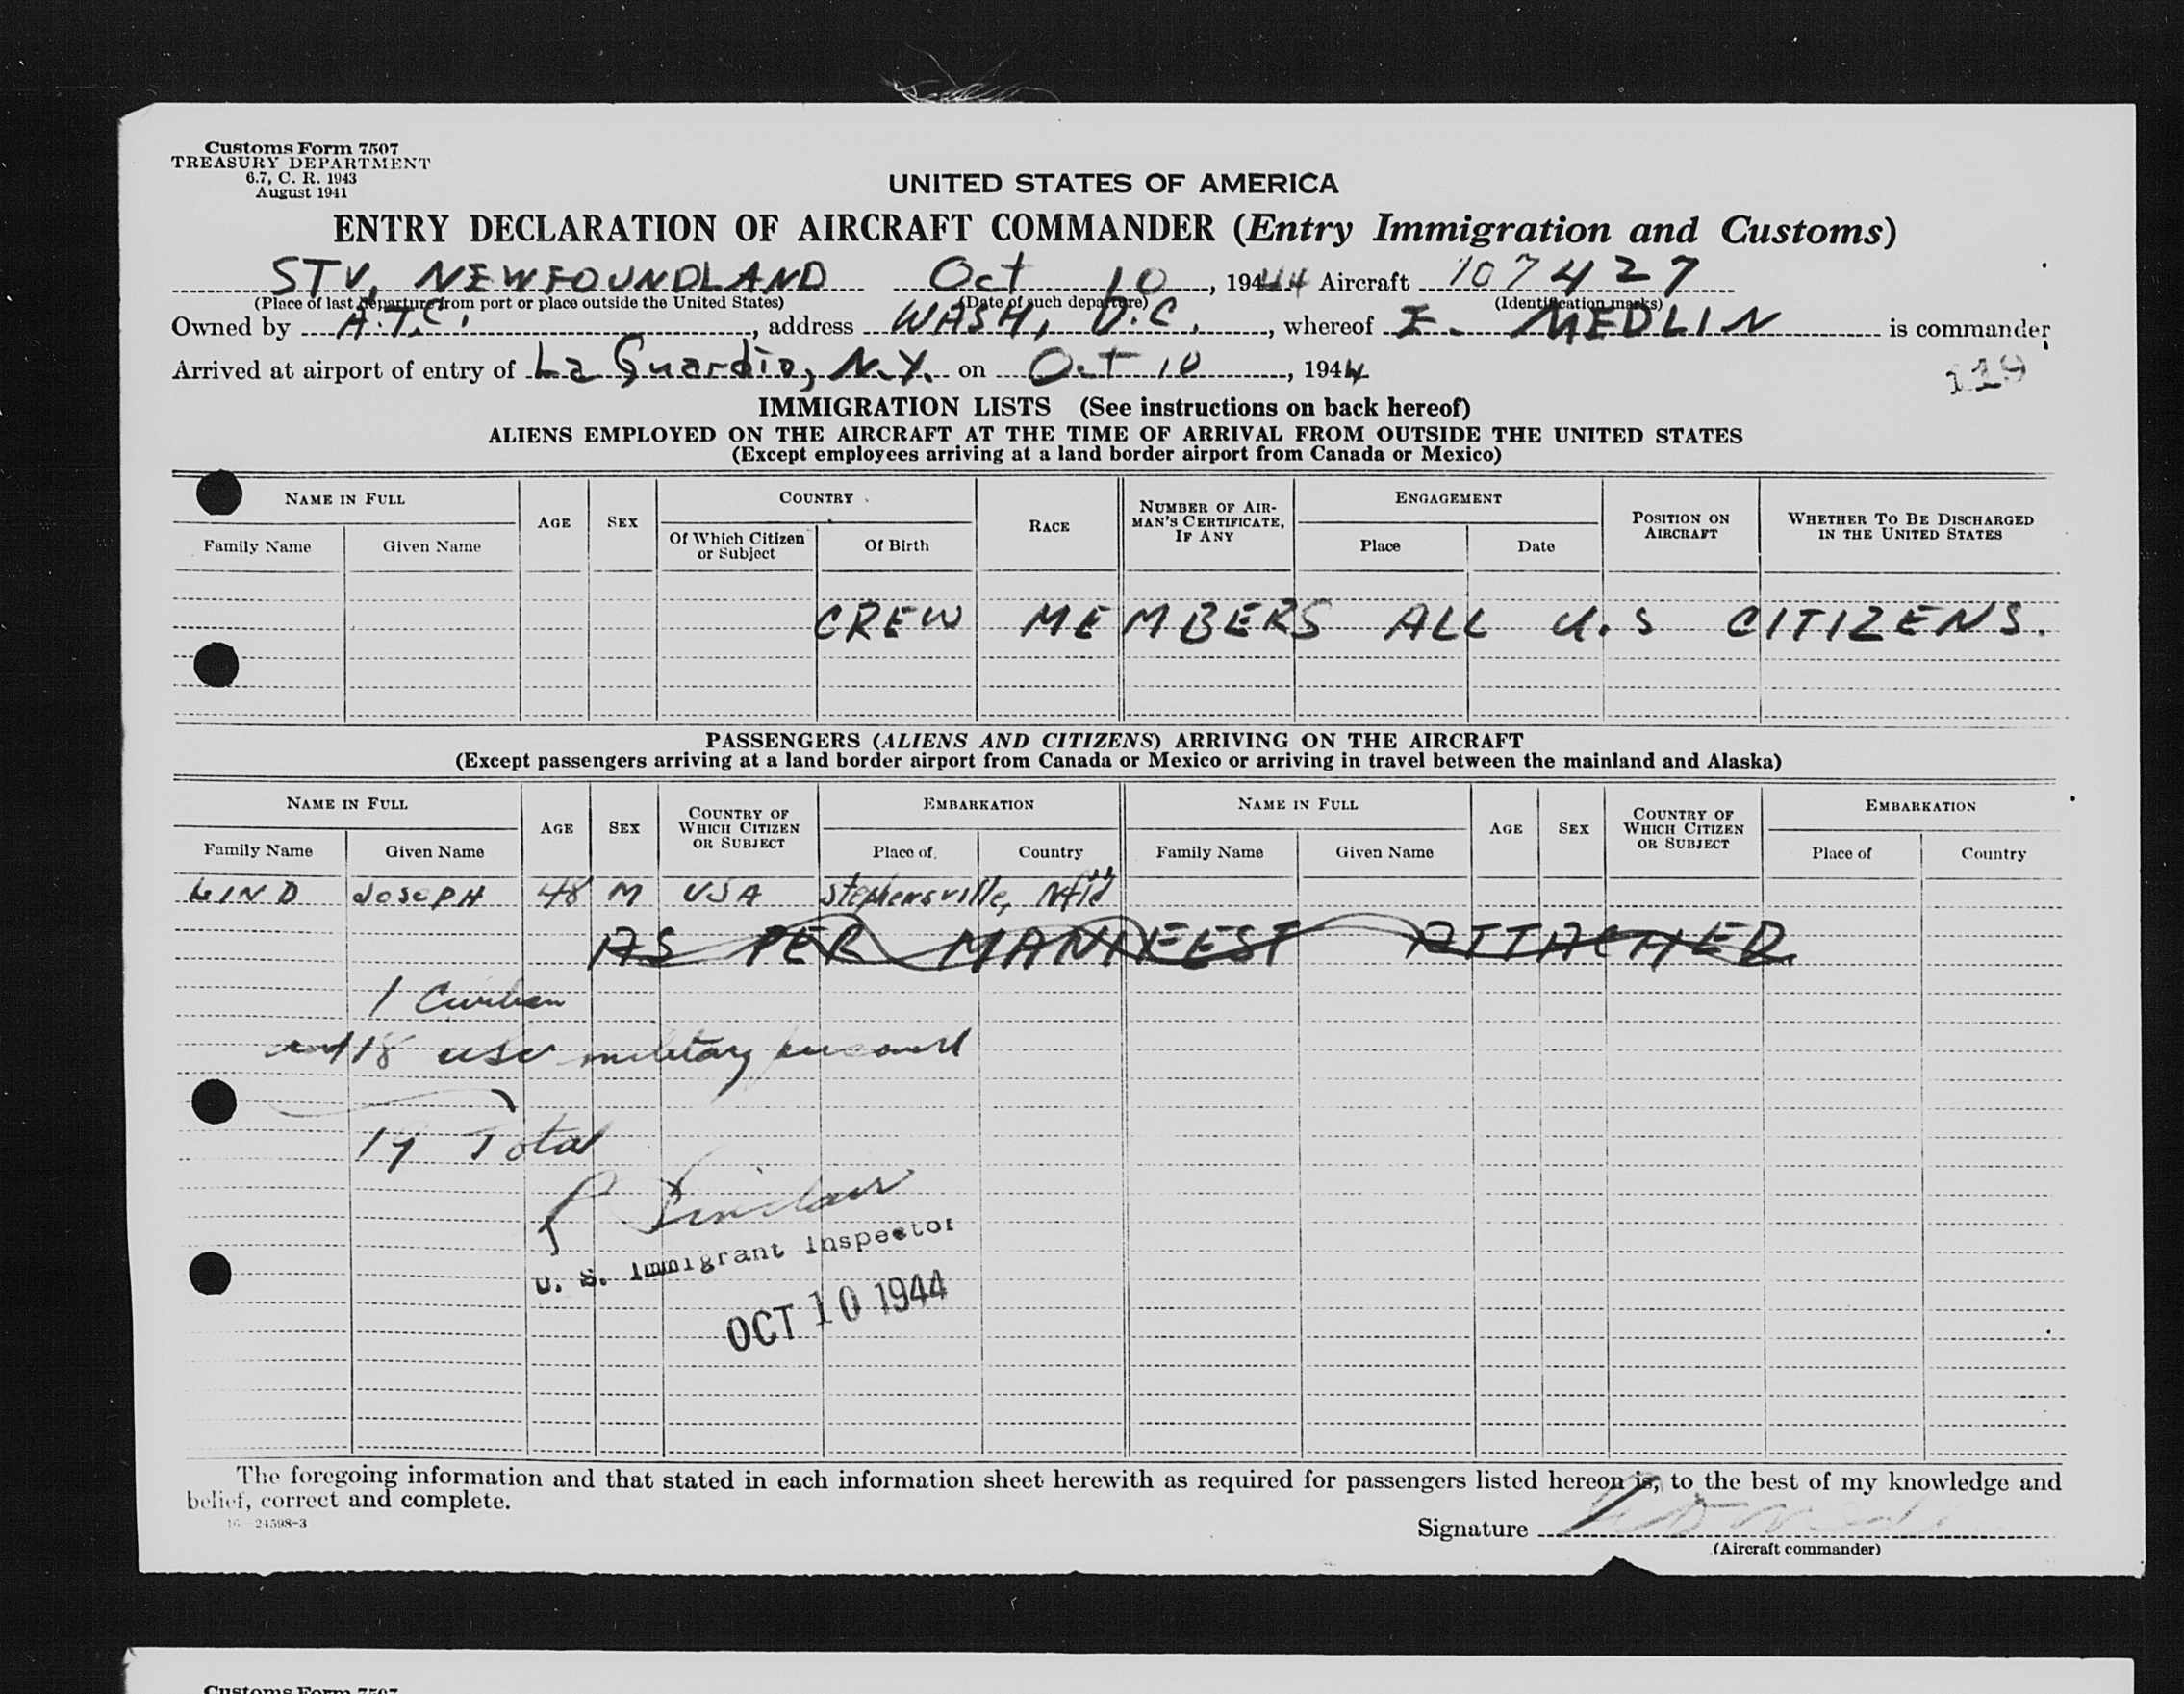 Customs Form 7507
TREASURY DEPARTMENT
6.7, C. R. 1943
August 1941
UNITED STATES OF AMERICA
ENTRY DECLARATION OF AIRCRAFT COMMANDER (Entry Immigration and Customs)
STV, NEWFOUNDLAND Oct 10, 1944 Aircraft 107427
(Place of last departure from port or place outside the United States) (Date of such departure) (Identification marks)
Owned by A.T.C., address WASH, D.C., whereof I. MEDLIN is commander
Arrived at airport of entry of La Guardia, N.Y. on Oct 10, 1944
119
IMMIGRATION LISTS (See instructions on back hereof)
ALIENS EMPLOYED ON THE AIRCRAFT AT THE TIME OF ARRIVAL FROM OUTSIDE THE UNITED STATES
(Except employees arriving at a land border airport from Canada or Mexico)
NAME IN FULL AGE SEX COUNTRY RACE NUMBER OF AIRMAN'S CERTIFICATE, IF ANY ENGAGEMENT POSITION ON AIRCRAFT WHETHER TO BE DISCHARGED IN THE UNITED STATES
Family Name Given Name Of Which Citizen or Subject Of Birth Place Date
CREW MEMBERS ALL U.S CITIZENS.
PASSENGERS (ALIENS AND CITIZENS) ARRIVING ON THE AIRCRAFT
(Except passengers arriving at a land border airport from Canada or Mexico or arriving in travel between the mainland and Alaska)
NAME IN FULL AGE SEX COUNTRY OF WHICH CITIZEN OR SUBJECT EMBARKATION NAME IN FULL AGE SEX COUNTRY OF WHICH CITIZEN OR SUBJECT EMBARKATION
Family Name Given Name Place of Country Family Name Given Name Place of Country
LIND JOSEPH 48 M USA Stephensville, Nfld
AS PER MANIFEST ATTACHED
1 Civilian
and 18 military personnel
19 Total
Sinclair
U. S. Immigrant Inspector
OCT 10 1944
The foregoing information and that stated in each information sheet herewith as required for passengers listed hereon is, to the best of my knowledge and
belief, correct and complete.
16-24598-3
Signature
(Aircraft commander)
Customs Form 7507